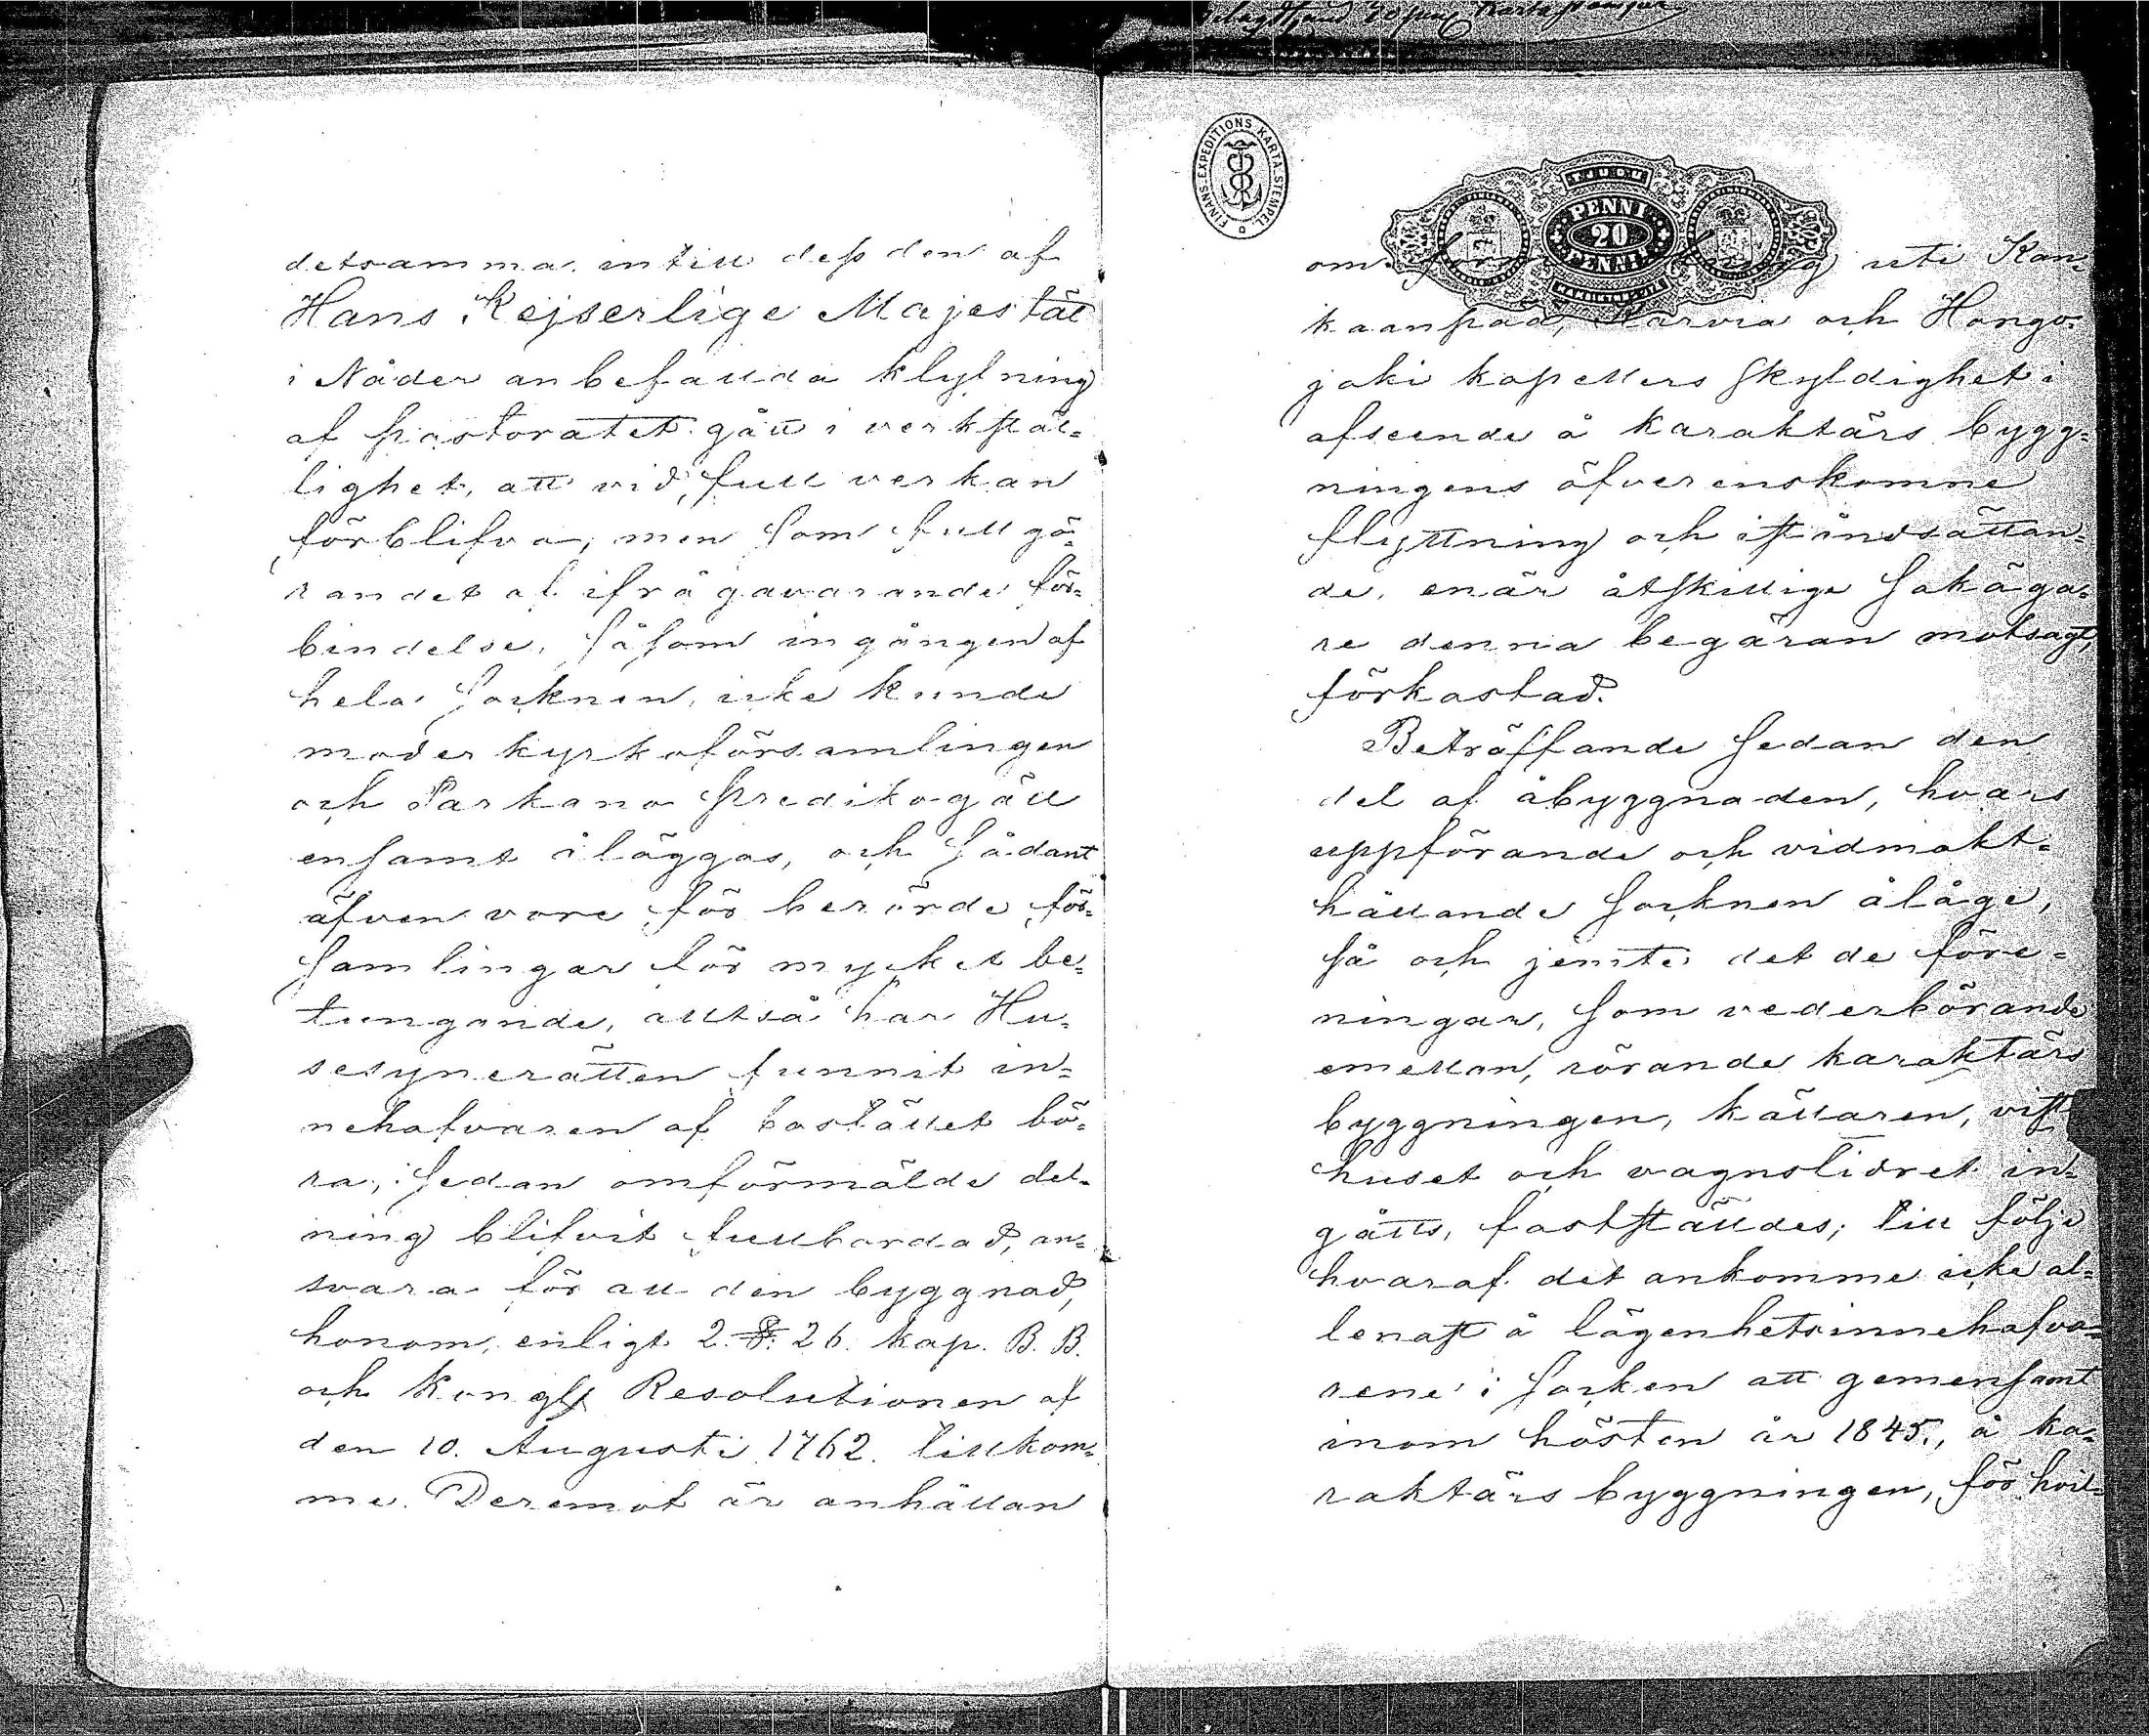 detsamma intill dess den af
Hans Kejserlige Majestät
i Nåder anbefallda klyfning
af pastoratet gått i verkstäl=
lighet, att vid full verkan
förblifva, men som fullgö=
randet af ifrågavarande för=
bindelse, såsom ingången af
hela socknen, icke kunde
moderkyrkoförsamlingen
och Parkano predikogäll
ensamt åläggas, och sådant
äfven vore för berörde för=
samlingar för mycket be=
tungande, alltså har Hu=
sesynerätten funnit in=
nehafvaren af bostället bö=
ra, sedan omförmälde del=
ning blifvit fullbordad, an=
svara för all den byggnad,
honom, enligt 2. §. 26. kap. B. B.
och Kongl. Resolutionen af
den 10. Augusti 1762. tillkom=
me. Deremot är anhållan
FINANS-EXPEDITIONS KARTA-STEMPEL
TJUGU
PENNI
20
PENNIÄ
KAKSIKYMMENTÄ
om uti Kan=
kaanpää, Karvia och Hongo=
joki kapellers skyldighet i
afseende å karaktärs bygg=
ningens öfverenskomne
flyttning och iståndsättan=
de, enär åtskillige sakäga=
re denna begäran motsagt,
förkastad.
Beträffande sedan den
del af åbyggnaden, hvars
uppförande och vidmakt=
hållande socknen ålåge,
så och jemte det de före=
ningar, som vederbörande
emellan, rörande karaktärs
byggningen, källaren, vist
huset och vagnslidret in=
gåtts, fastställdes; till följe
hvaraf det ankomme icke al=
lenast å lägenhetsinnehafva=
rene i socken att gemensamt
inom hösten år 1845., å ka=
raktärs byggningen, för hvil=